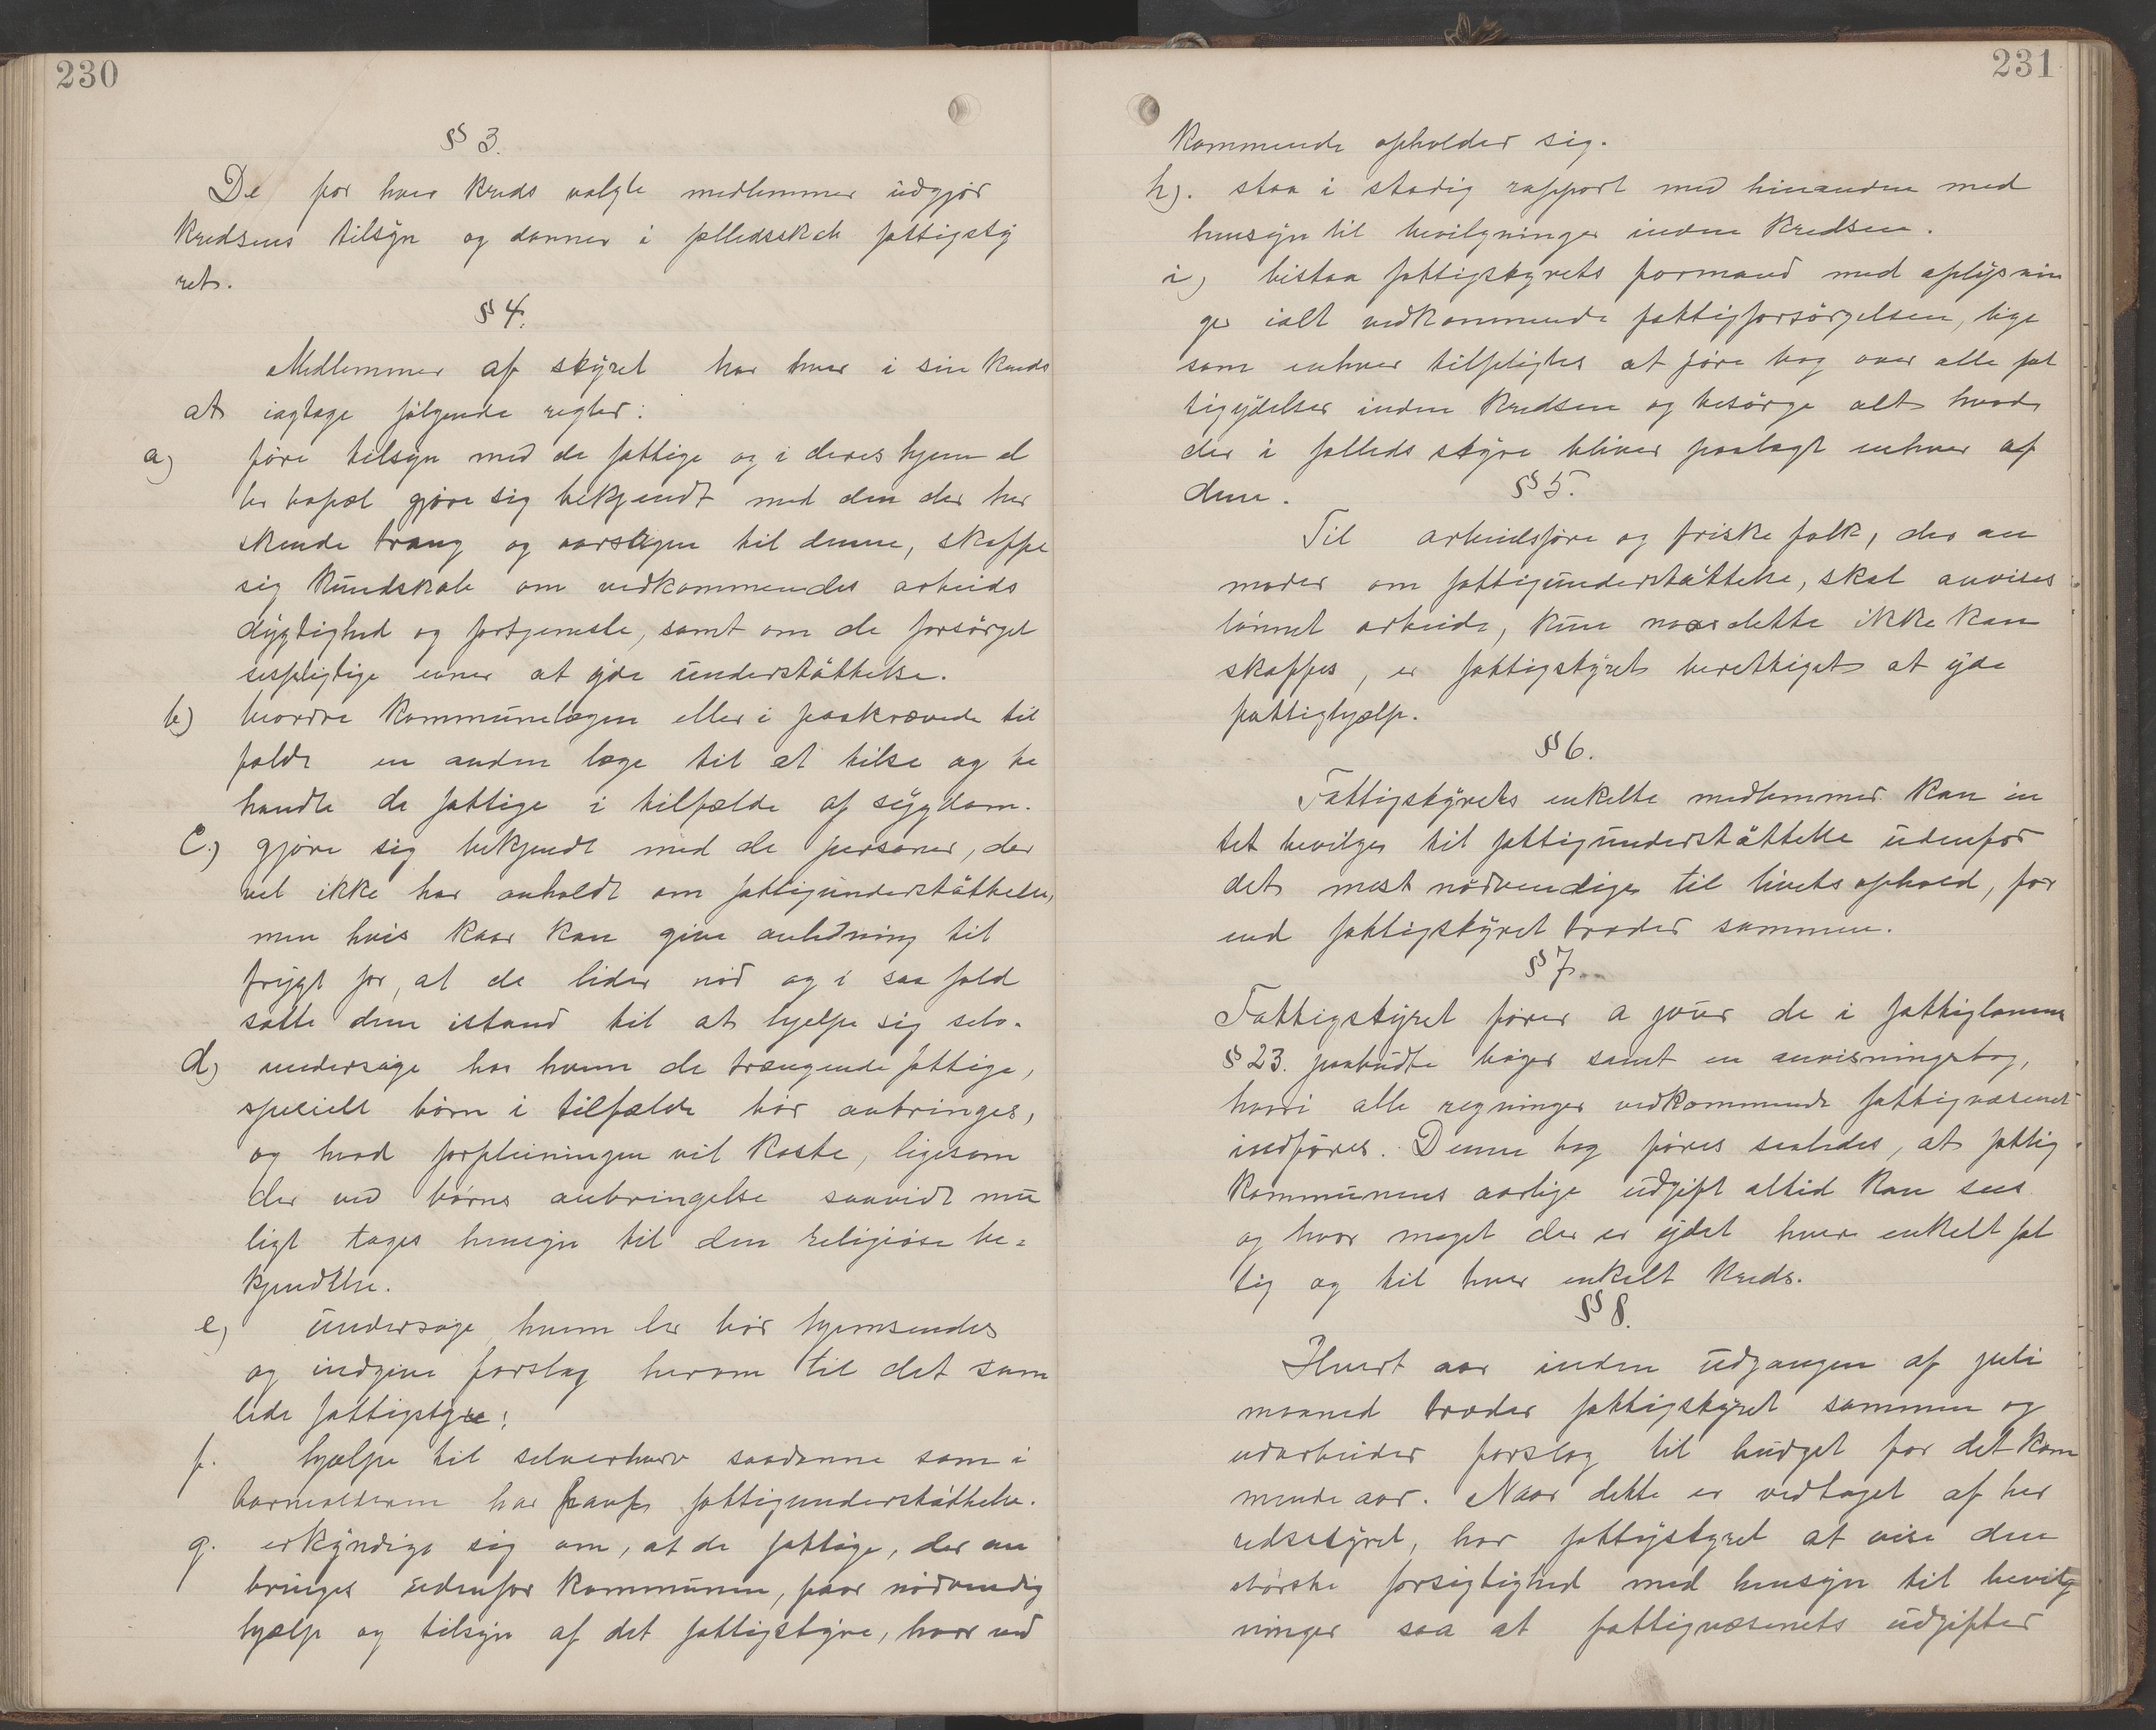 230
§ 3.
De for hver kreds valgte medlemmer udgjør
kredsens tilsyn og danner i fælledsskab fattigsty
ret.
§ 4.
Medlemmer af styret har hver i sin kreds
at iagtage følgende regler:
a) føre tilsyn med de fattige og i deres hjem el
ler bopæl gjøre sig bekjendt med den der her
skende trang og aarsagen til denne, skaffe
sig kundskab om vedkommendes arbeids
dygtighed og fortjeneste, samt om de forsørgel
sespligtige evner at yde understøttelse.
b) beordre kommunelægen eller i paakrævede til
fælde en anden læge til at tilse og be
handle de fattige i tilfælde af sygdom.
c.) gjøre sig bekjendt med de personer, der
vel ikke har anholdt om fattigunderstøttelse,
men hvis kaar kan give anledning til
frygt for, at de lider nød og i saa fald
sætte dem istand til at hjelpe sig selv.
d) undersøge hos hvem de trængende fattige,
specielt børn i tilfælde bør anbringes,
og hvad forpleiningen vil koste, ligesom
der ved børns anbringelse saavidt mu
ligt tages hensyn til den religiøse be=
kjendelse.
e) undersøge hvem der bør hjemsendes
og indgive forslag herom til det sam
lede fattigstyre;
f. hjælpe til selverhverv saadanne som i
barnealderen har havt fattigunderstøttelse.
g. erkyndige sig om, at de fattige, der an
bringes udenfor kommunen, faar nødvendig
hjælp og tilsyn af det fattigstyre, hvor ved
231
kommende opholder sig.
h). staa i stadig rapport med hinanden med
hensyn til bevilgninger inden kredsen.
i) bistaa fattigstyrets formand med oplysnin
ger ialt vedkommende fattigforsørgelsen, lige
som enhver tilpligtes at føre bog over alle fat
tigydelser inden kredsen og besørge alt hvad
der i fælleds styre bliver paalagt enhver af
dem.
§ 5.
Til arbeidsføre og friske folk, der an
moder om fattigunderstøttelse, skal anvises
lønnet arbeide, kun naar dette ikke kan
skaffes, er fattigstyret berettiget at yde
fattighjælp.
§ 6.
Fattigstyrets enkelte medlemmer kan in
tet bevilge til fattigunderstøttelse udenfor
det mest nødvendige til livets ophold, før
end fattigstyret træder sammen.
§ 7.
Fattigstyret fører a jour de i fattiglovens
§ 23. paabudte bøger samt en anvisningsbog,
hvori alle regninger vedkommende fattigvæsenet
indføres. Denne bog føres saaledes, at fattig
kommunens aarlige udgift altid kan sees
og hvor meget der er ydet hver enkelt fat
tig og til hver enkelt kreds.
§ 8.
Hvert aar inden udgangen af juli
maaned træder fattigstyret sammen og
udarbeider forslag til budget for det kom
mende aar. Naar dette er vedtaget af her
redsstyret, har fattigstyret at vise den
største forsigtighed med hensyn til bevilg
ninger saa at fattigvæsenets udgifter